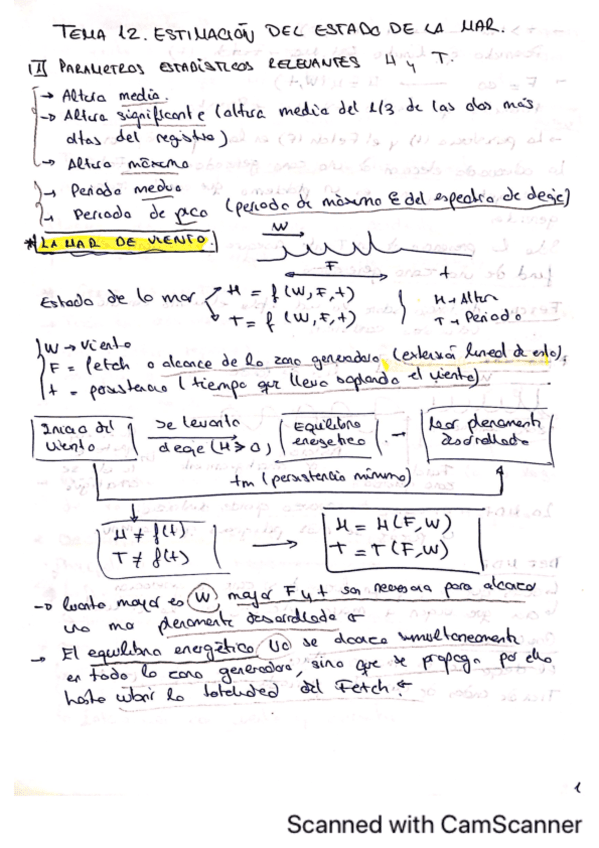 TEMA 12. ESTIMACIÓN DEL ESTADO DE LA MAR.
1) PARAMETROS ESTADÍSTICOS RELEVANTES H y T.
→ Altura media.
→ Altura significante (altura media del 1/3 de las olas más
altas del registro)
→ Altura máxima
→ Periodo medio
→ Periodo de pico (periodo de máximo E del espectro de oleaje)
* LA MAR DE VIENTO.
W
F
t
Estado de la mar. H = f (W, F, t)
T = f (W, F, t)
H → Altura
T → Periodo
W → Viento
F = fetch o alcance de la zona generadora (extensión lineal de esta)
t = persistencia (tiempo que lleva soplando el viento)
Inicio del viento
Se levanta
oleaje (H>0)
Equilibrio energético
Mar plenamente desarrollada
tm (persistencia mínima)
H ≠ f(t)
T ≠ f(t)
H = H(F, W)
T = T(F, W)
→ Cuanto mayor es W, mayor F y t son necesaria para alcanzar
una mar plenamente desarrollada
→ El equilibrio energético NO se alcanza simultaneamente
en toda la zona generadora, sino que se propaga por ella
hasta cubrir la totalidad del Fetch.
1
Scanned with CamScanner